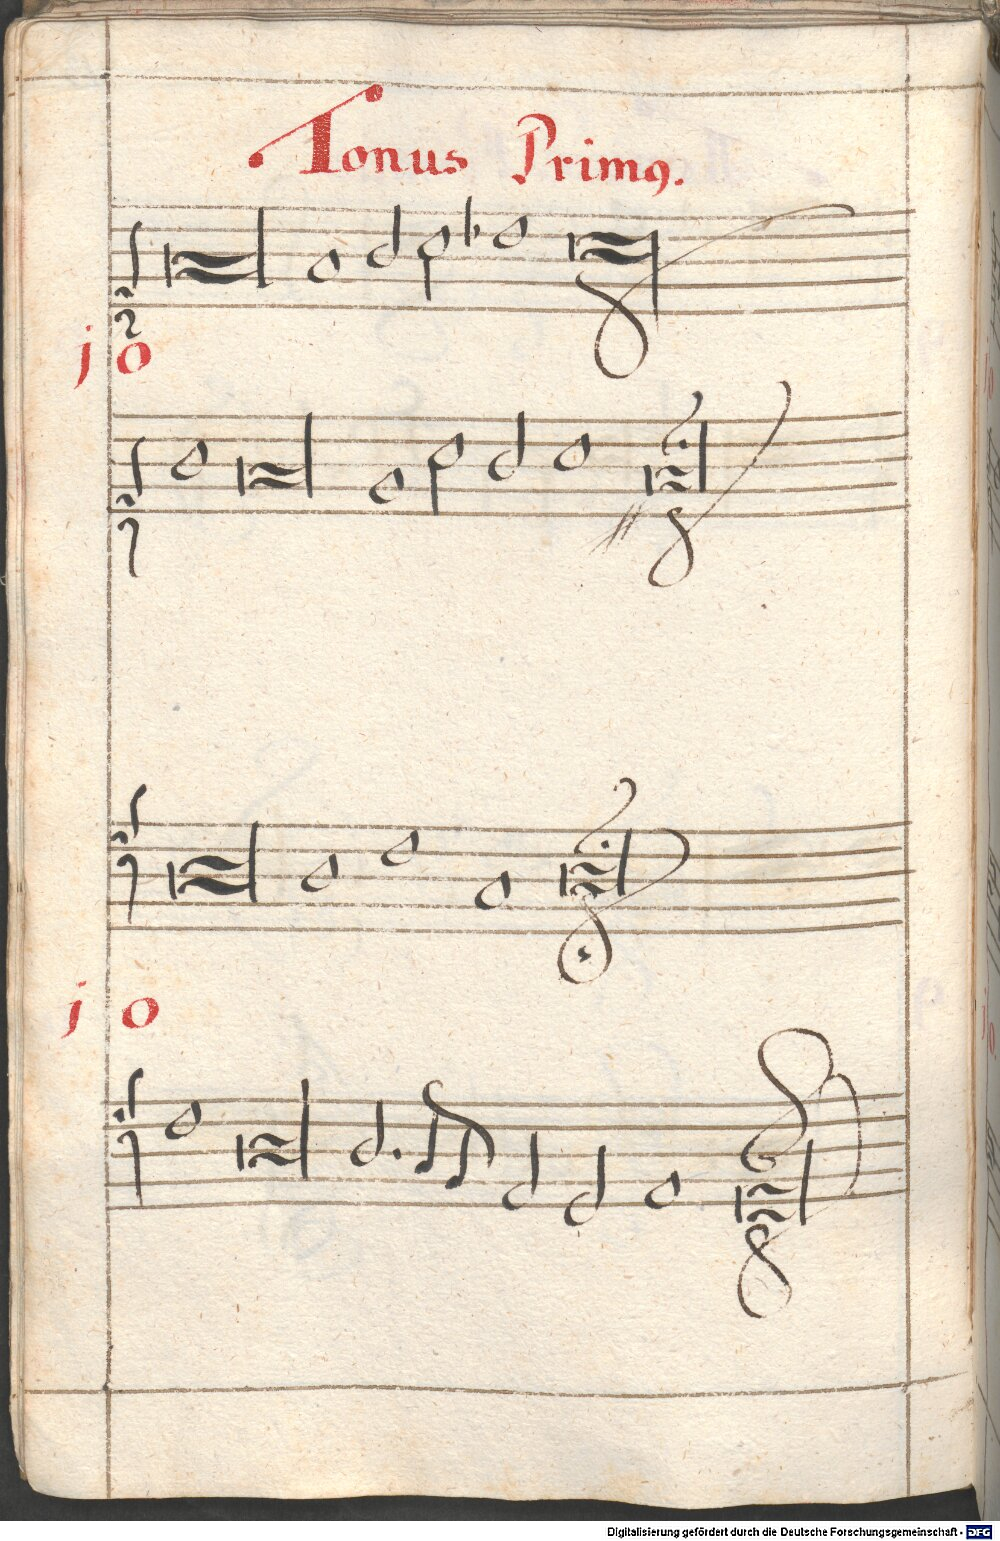 Tonus Primꝰ.
j o
j o
Digitalisierung gefördert durch die Deutsche Forschungsgemeinschaft - DFG